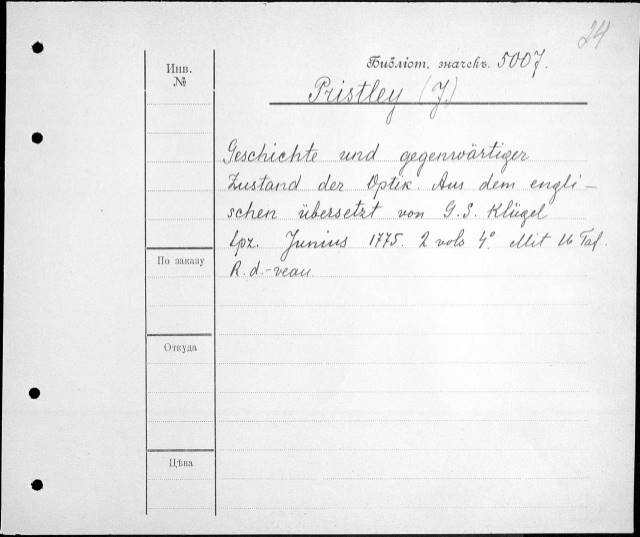 24
Библіот. значекъ. 5007.
Инв.
№
Pristley (J.)
Geschichte und gegenwärtiger
Zustand der Optik. Aus dem engli-
schen übersetzt von G. S. Klügel
Lpz. Junius 1775. 2 vols 4º Mit Taf.
R. d.-veau.
По заказу
Откуда
Цѣна